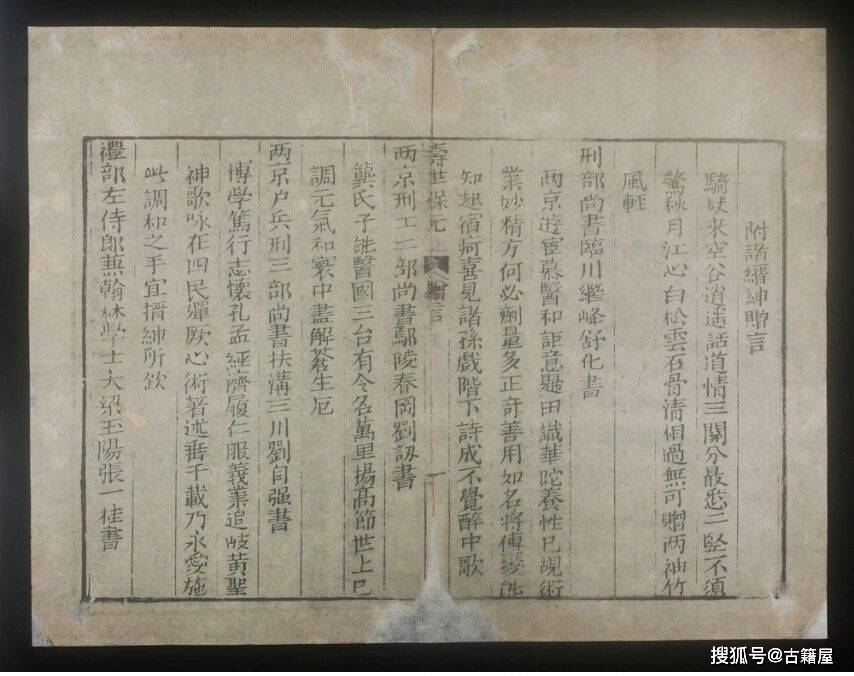 附諸縉紳贈言
騎杖來空谷逍遥話道情三關分最悉二竪不須
驚秋月江心白松雲石骨清相過無可贈两袖竹
風輕
刑部尚書臨川繼峰舒化書
两京遊宦慕醫和詎意田識華陀養性已規術
業妙精方何必劑量多正奇善用如名將傳變能
知起宿痾喜見諸孫戲階下詩成不覺醉中歌
壽世保元 贈言 一
两京刑工二部尚書鄢陵春岡劉訒書
龔氏子能醫國三台有令名萬里揚高節世上巳
調元氣和寰中盡解蒼生厄
两京户兵刑三部尚書扶溝三川劉自强書
博學篤行志懷孔孟經濟履仁服義業追岐黄聖
神歌咏在四民殫厥心術著述垂千載乃永愛施
此調和之手宜搢紳所欽
禮部左侍郎兼翰林學士大梁玉陽張一桂書
搜狐号@古籍屋